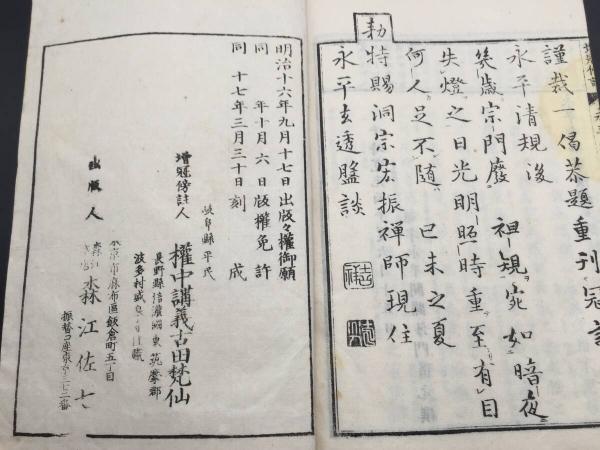 謹裁一偈恭題重刊冠註
永平清規後
祖規宛如暗夜
幾歳宗門廢
失燈之日光明照時重至有目
何人足不随
己未之夏
勅
特賜洞宗宏振禅師現住
永平玄透盥談
明治十六年九月十七日出版々權御願
同年十月六日版權免許
同十七年三月三十日刻成
岐阜縣平民
増冠傍註人
權中講義古田梵仙
長野縣信濃國東筑摩郡
波多村
出版人
森江佐七
東京市麻布區飯倉町五丁目
振替口座東京
番